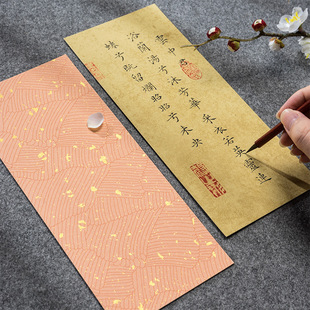 雲中
浴蘭湯兮沐芳華采衣若英靈連
蜷兮既留爛昭昭兮未央